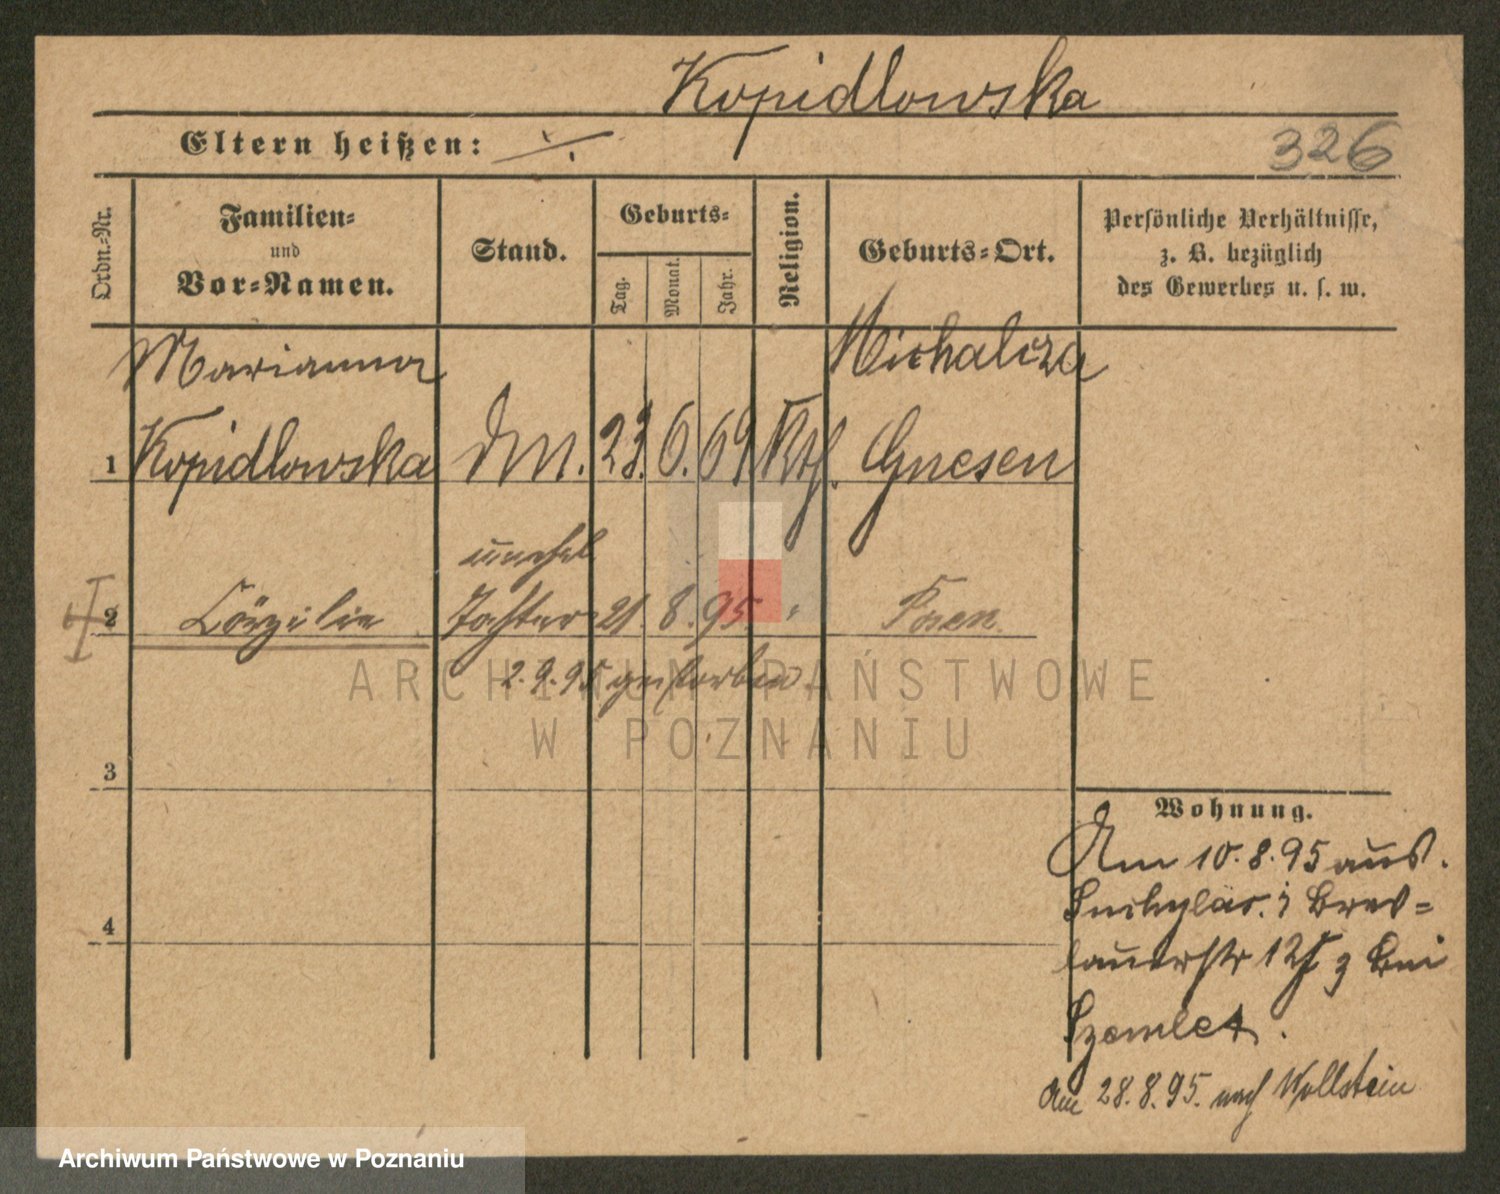 Kopidlowska
Eltern heißen: ./.
326
Ordn.-Nr.
Familien-
und
Vor-Namen.
Stand.
Geburts-
Tag.
Monat.
Jahr.
Religion.
Geburts-Ort.
Persönliche Verhältnisse,
z. B. bezüglich
des Gewerbes u. s. w.
Marianna
Michalcza
1 Kopidlowska 23. 6. 69 Kth. Gnesen
unehel
2 Cäzilie Tochter 21. 8. 95. Posen.
2.9.95 gestorben.
3
4
Wohnung.
Am 10.8.95 aus
i Bres-
lauerstr 12 3 bei
Am 28.8.95. nach Wollstein
ARCHIWUM PAŃSTWOWE
W POZNANIU
Archiwum Państwowe w Poznaniu